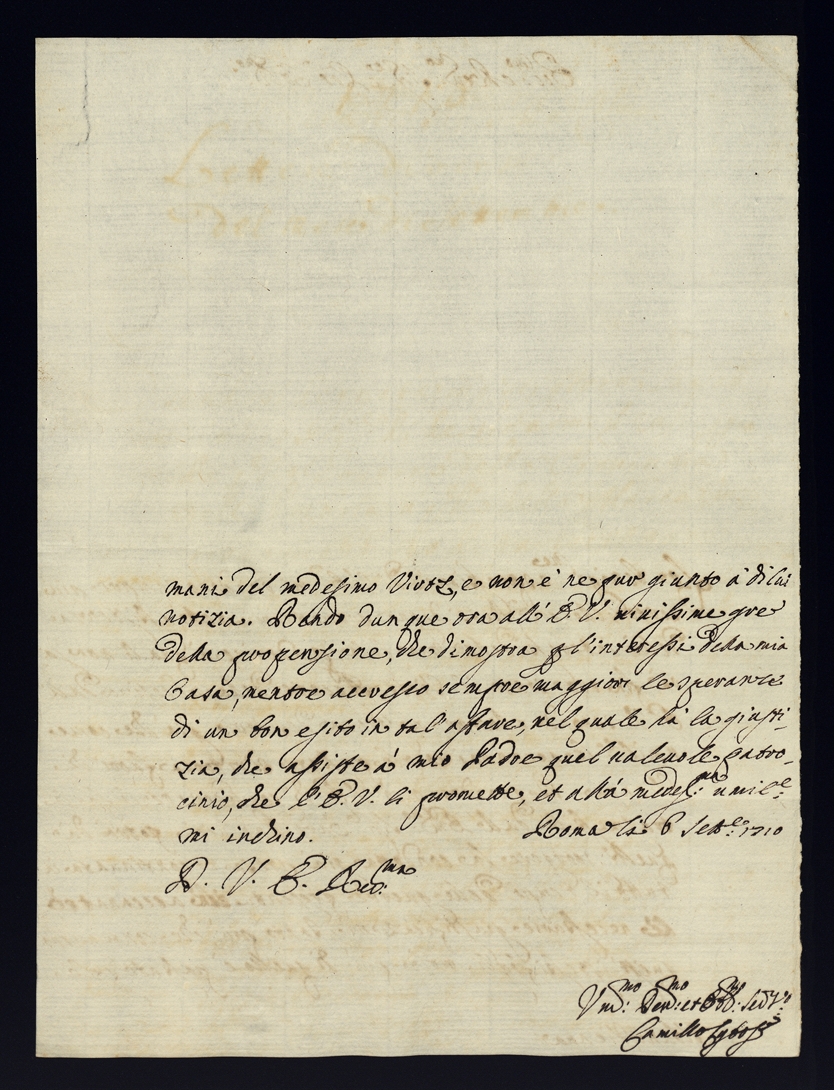 mani del medesimo Virtz, e non è ne pur giunto à di lui
notizia. Rendo dunque ora all' E. V. vivissime gre
della propensione, che dimostra p l'interessi della mia
Casa, mentre accresco sempre maggiori le speranze
di un bon esito in tal' affare, nel quale hà la giusti-
zia, che assiste à mio Padre quel valevole patro-
cinio, che l'E. V. li promette, et alla medes.ma umil.e
mi inchino. Roma li 6 Sett.e 1710
D. V. E. Re.ma
Um.mo Dev.mo et Obb.mo Ser.re
Camillo Cybo